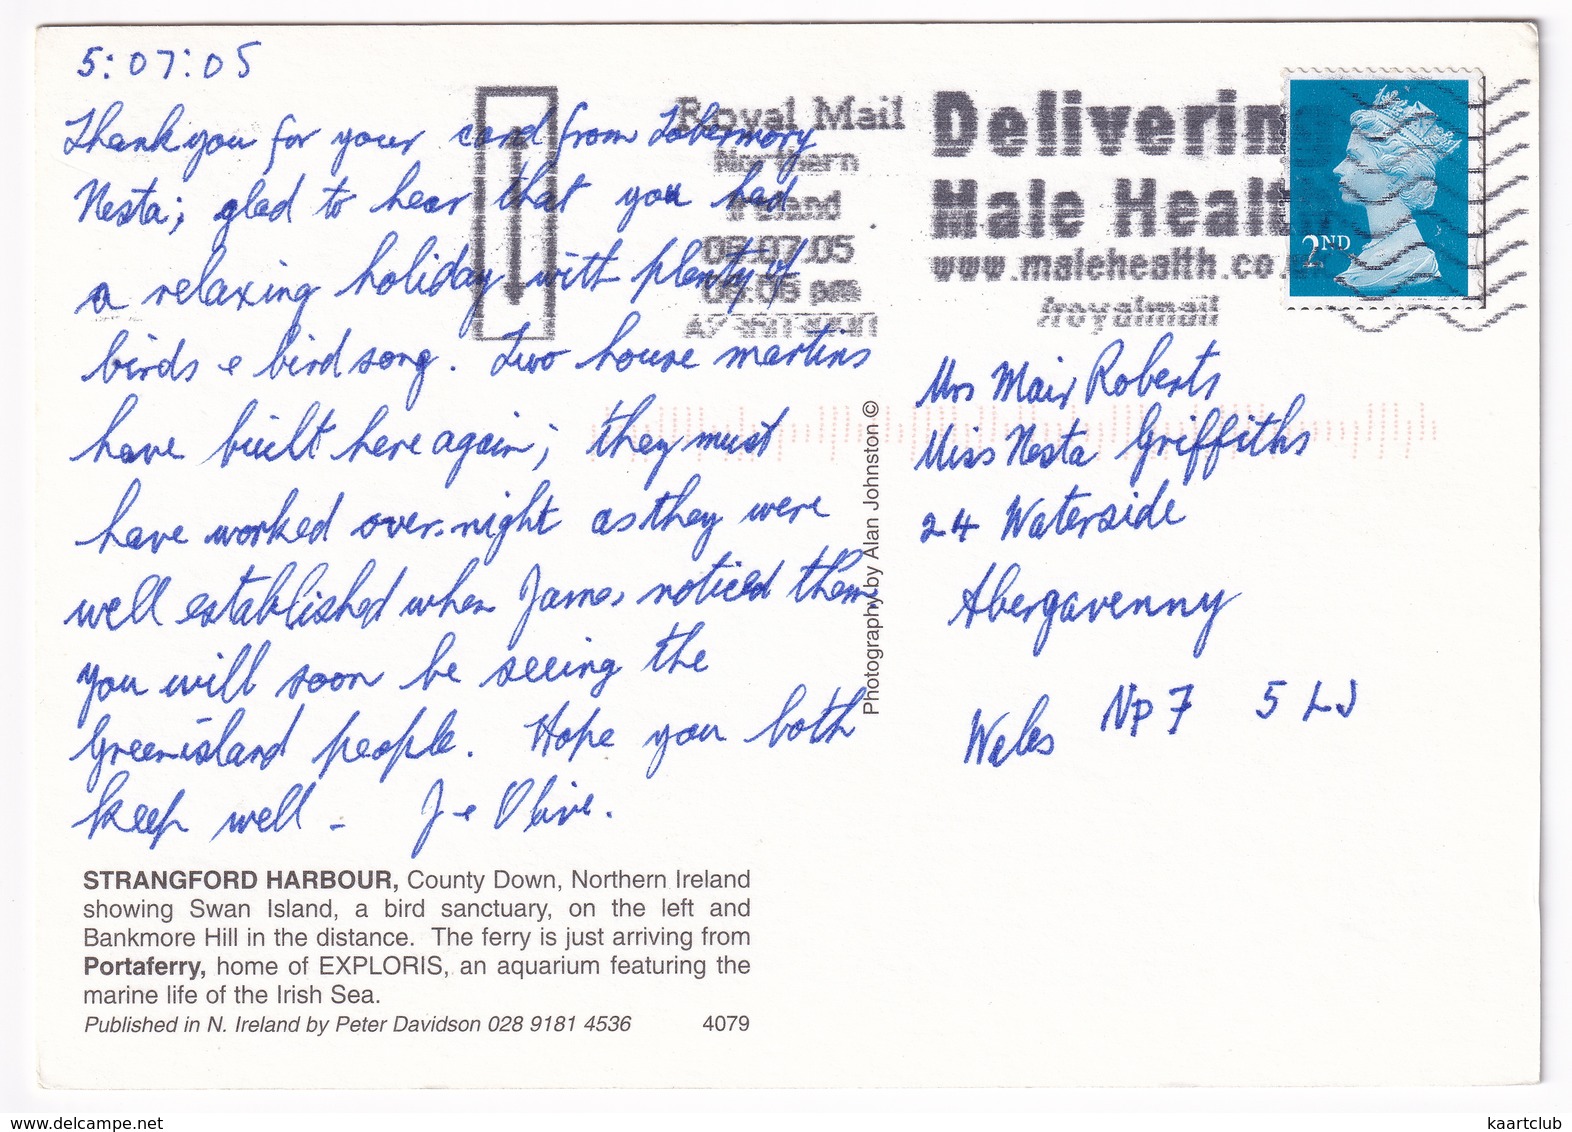 5:07:05
Thank you for your card from Tobermory
Nesta; glad to hear that you had
a relaxing holiday with plenty of
birds & birdsong. Two house martins
have built here again; they must
have worked over-night as they were
well established when James noticed them
you will soon be seeing the
Greenisland people. Hope you both
keep well - J & Olive.
STRANGFORD HARBOUR, County Down, Northern Ireland
showing Swan Island, a bird sanctuary, on the left and
Bankmore Hill in the distance. The ferry is just arriving from
Portaferry, home of EXPLORIS, an aquarium featuring the
marine life of the Irish Sea.
Published in N. Ireland by Peter Davidson 028 9181 4536 4079
Photography by Alan Johnston ©
Royal Mail
Northern
Ireland
07.05
pm
Deliverin
Male Healt
www.malehealth.co.
/royalmail
2ND
Mrs Mair Roberts
Miss Nesta Griffiths
24 Waterside
Abergavenny
Wales NP7 5LJ
www.delcampe.net
kaartclub